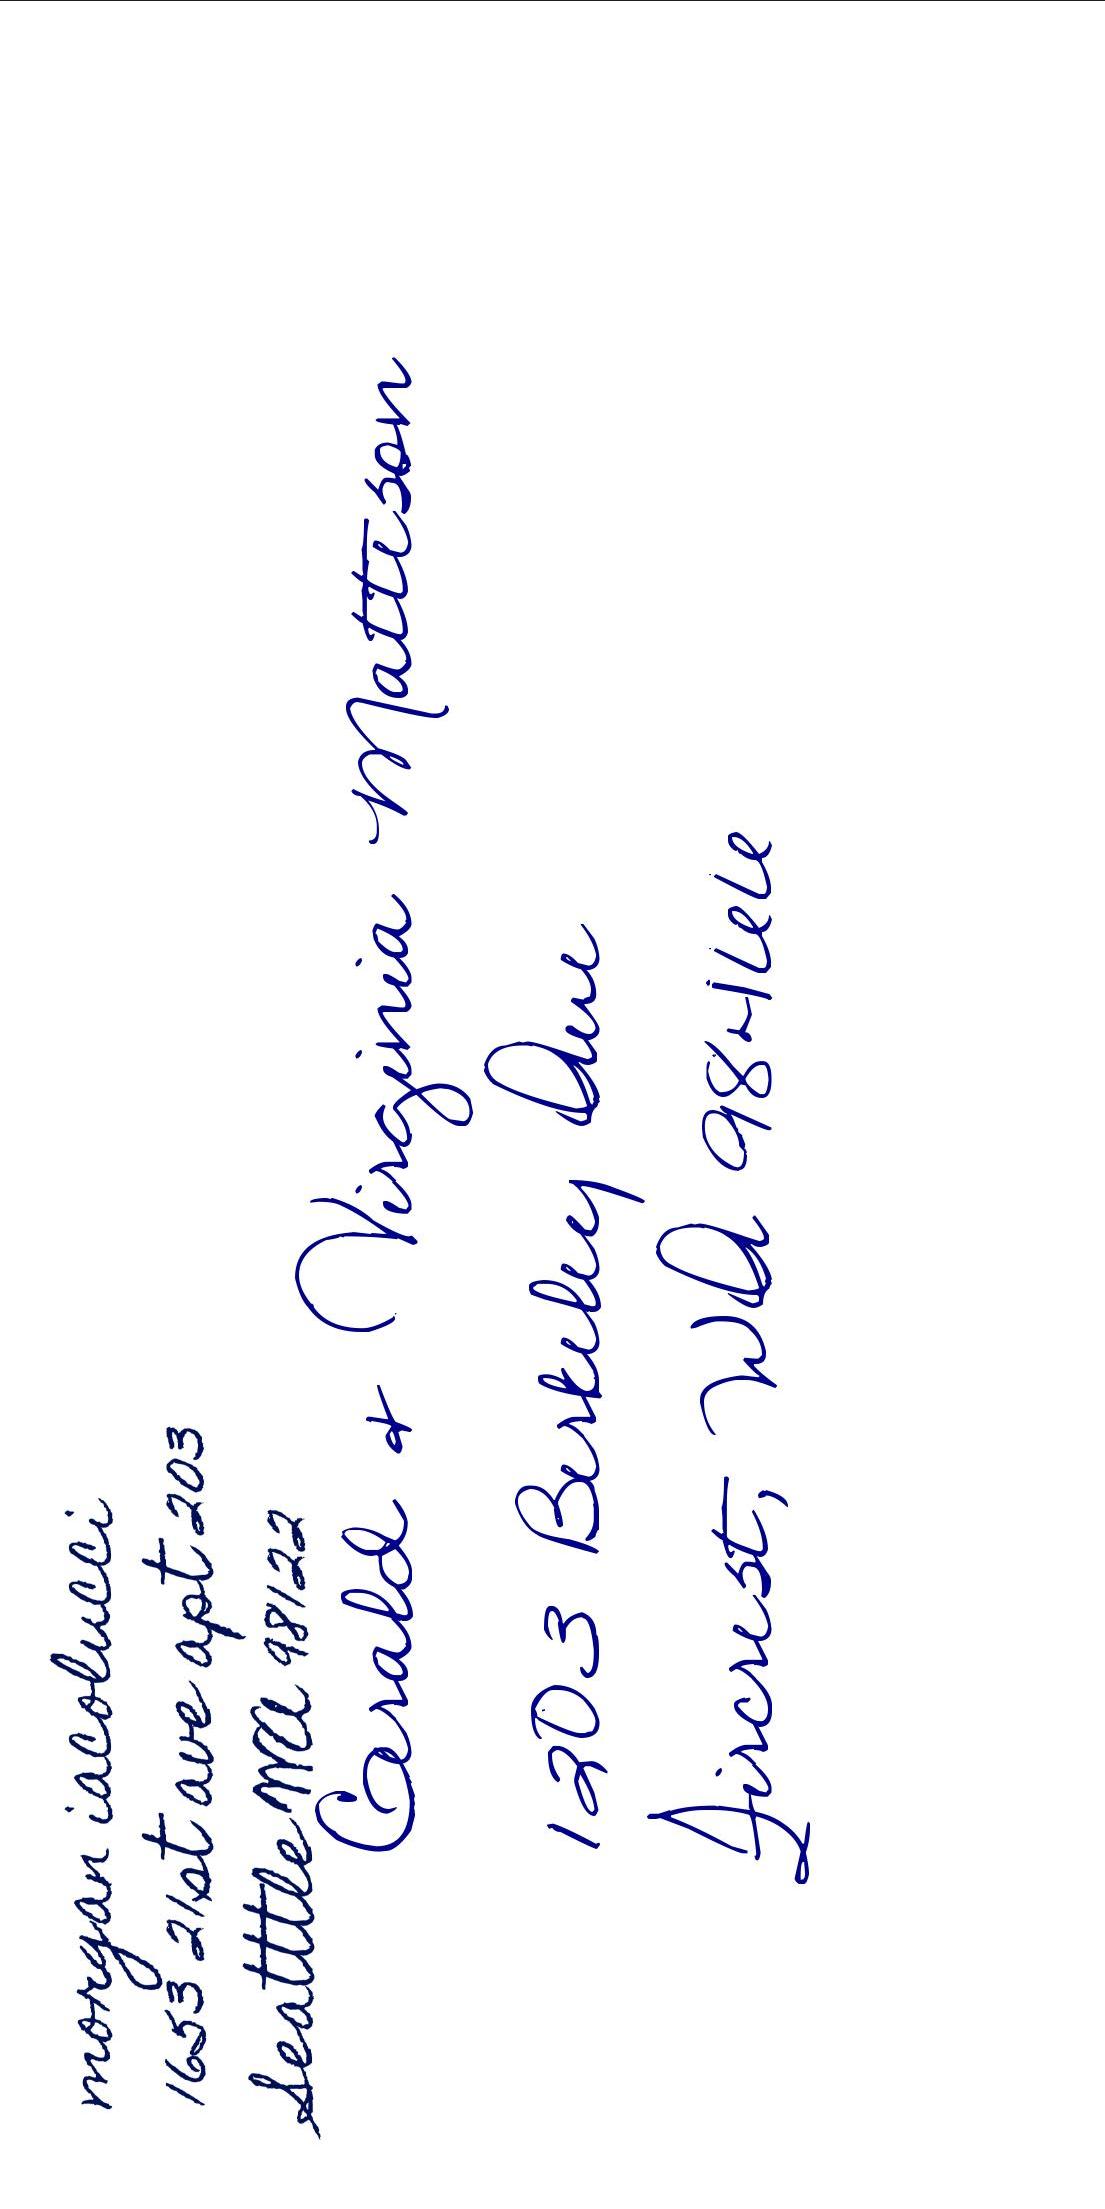 morgan iacolucci
1653 21st ave apt 203
Seattle WA 98122
Gerald & Virginia Mattson
1203 Berkeley Ave
Fircrest, WA 98466